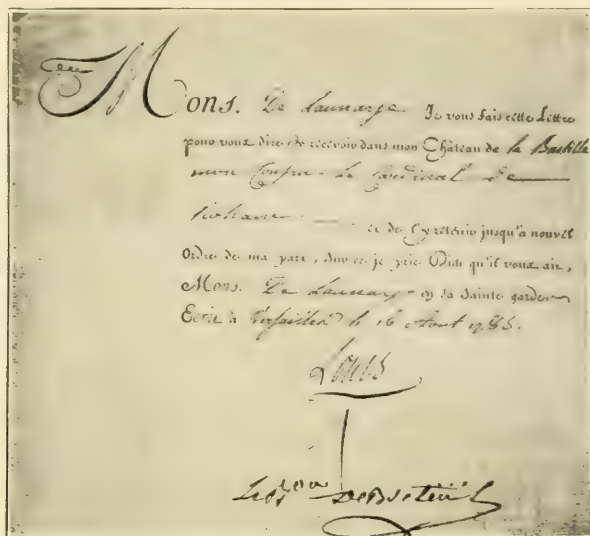 Mons. De Launay Je vous fais cette Lettre
pour vous dire de recevoir dans mon Château de la Bastille
mon Cousin le Cardinal de
Rohan et de l'y retenir jusqu'à nouvel
Ordre de ma part, Sur ce je prie Dieu qu'il vous ait,
Mons. De Launay en sa Sainte garde
Ecrit à Versailles le 16 Aout 1785.
Louis
Le Bon De Breteuil